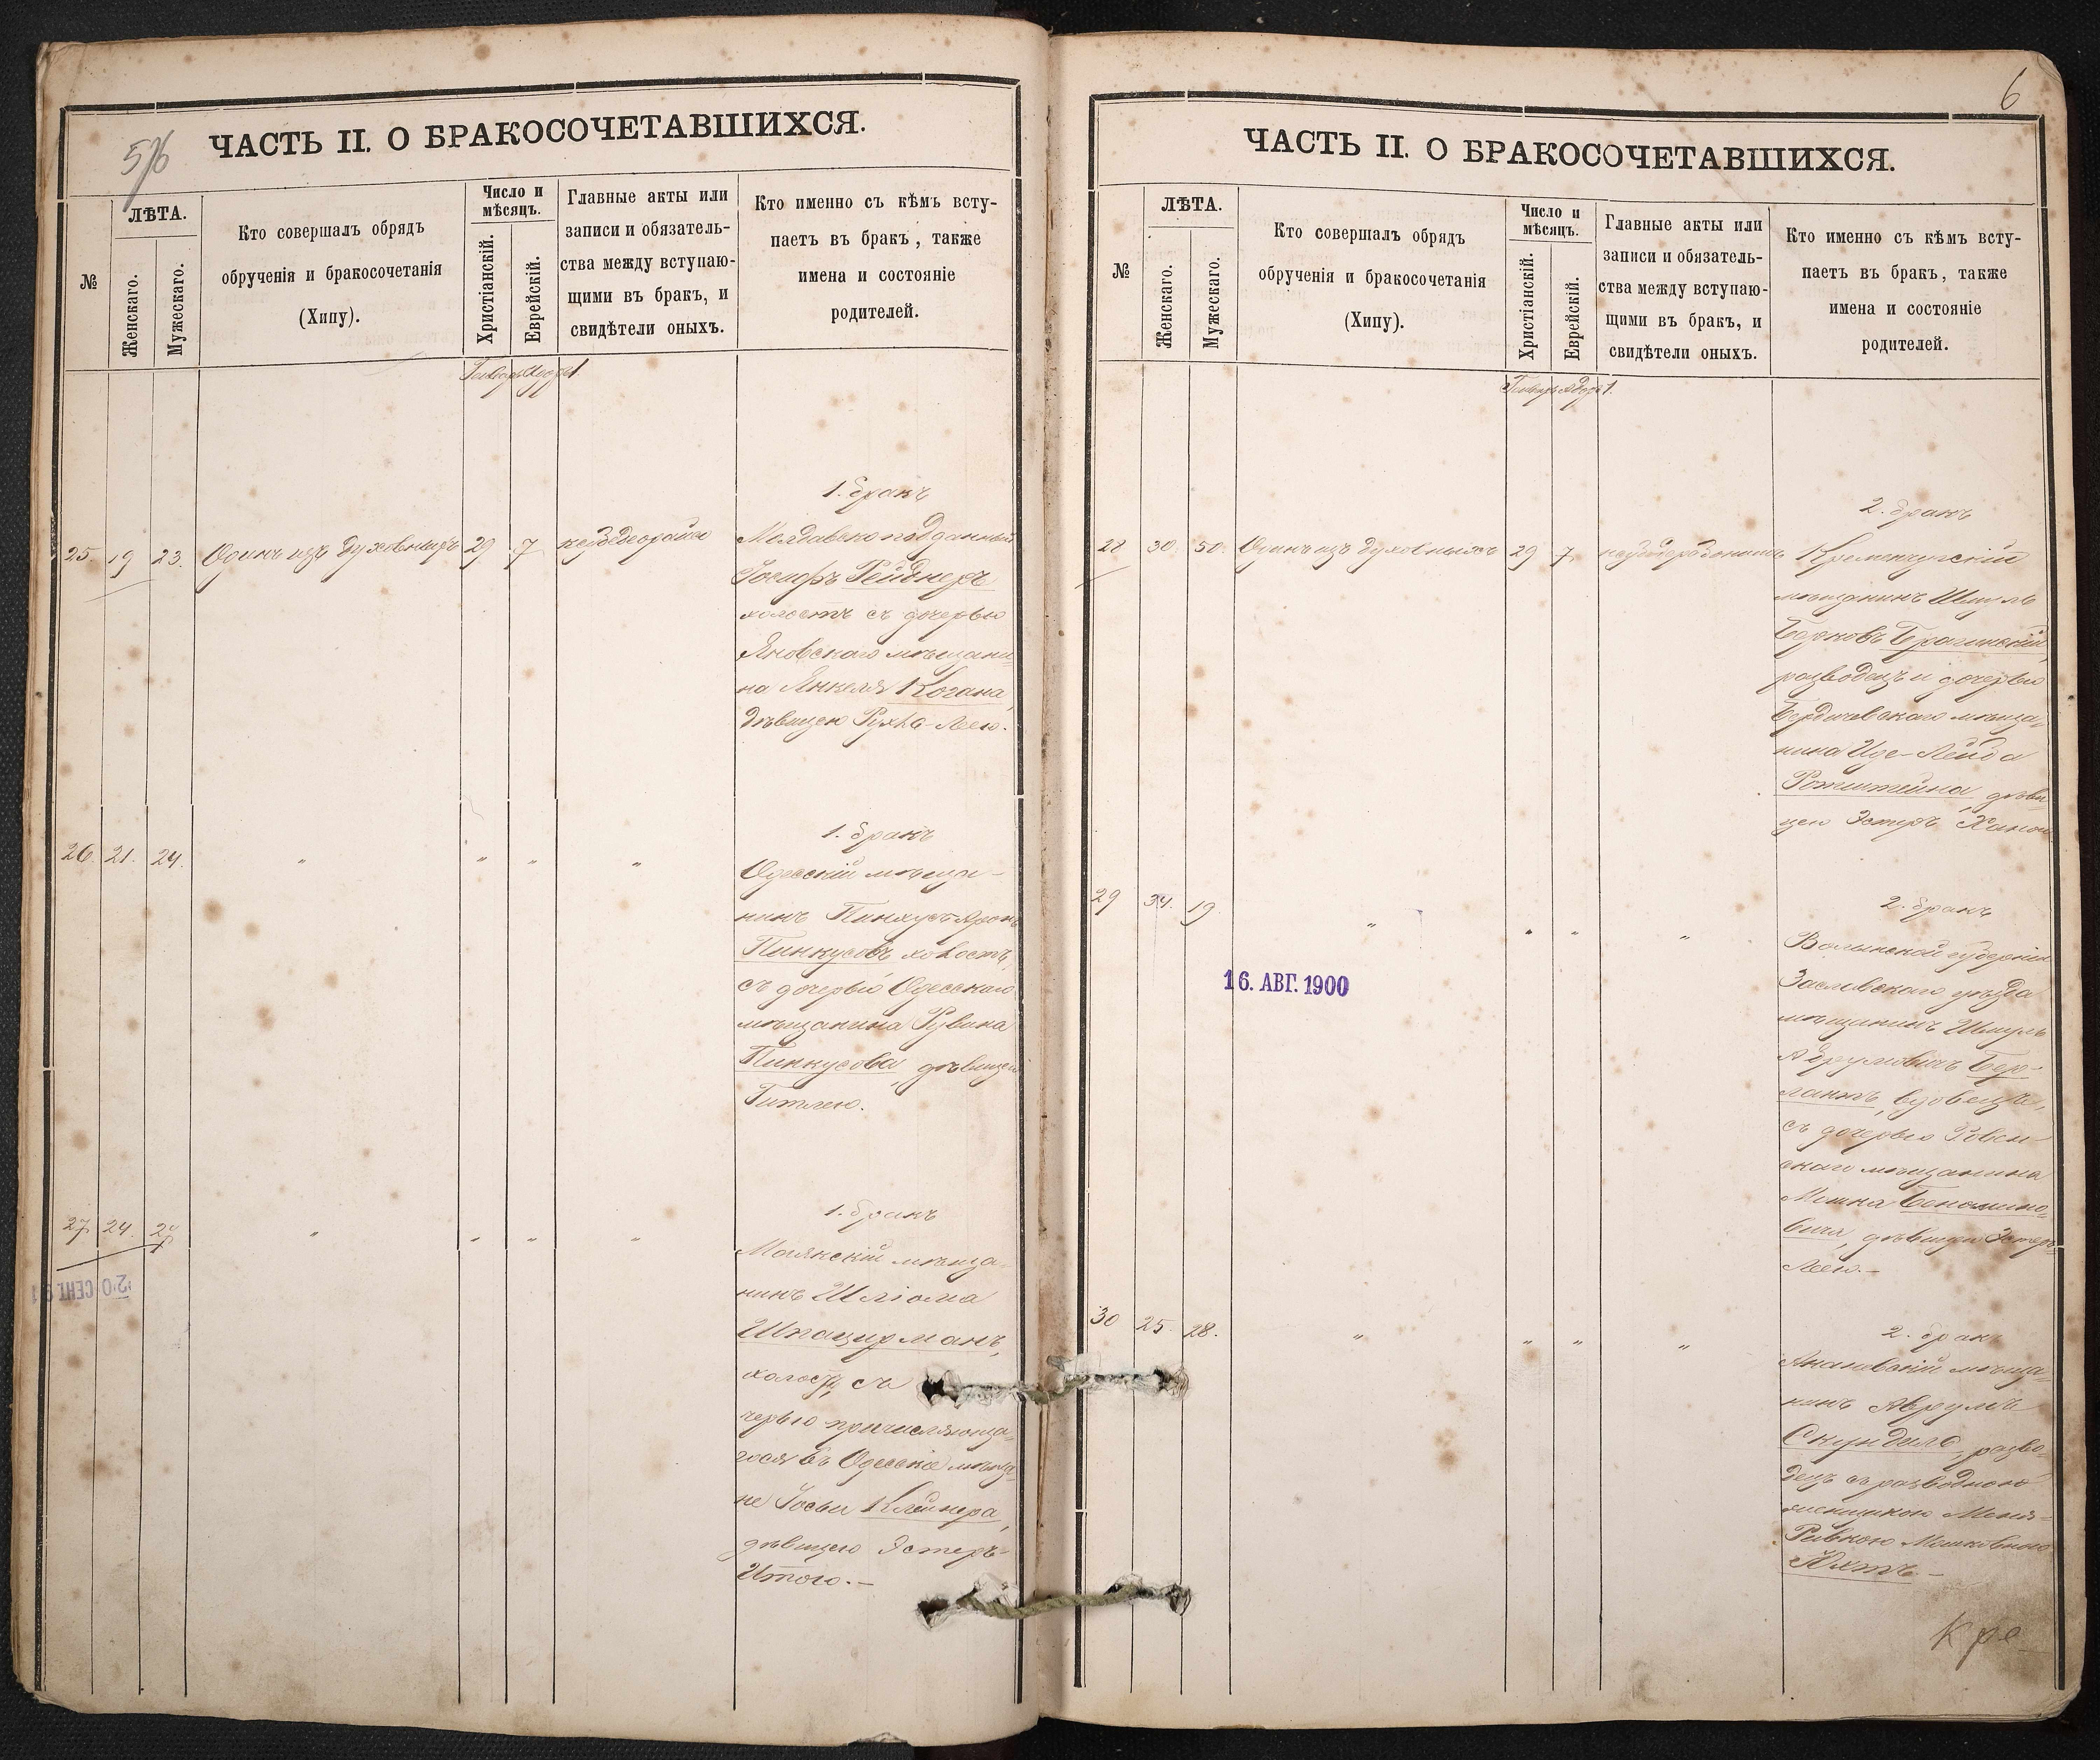 ЧАСТЬ II. О БРАКОСОЧЕТАВШИХСЯ.
№
ЛѢТА.
Женскаго.
Мужескаго.
Кто совершалъ обрядъ
обрученія и бракосочетанія
(Хипу).
Число и
мѣсяцъ.
Христіанскій.
Еврейскій.
Главные акты или
записи и обязатель-
ства между вступаю-
щими въ бракъ, и
свидѣтели оныхъ.
Кто именно съ кѣмъ всту-
паетъ въ бракъ, также
имена и состояніе
родителей.
1. бракъ
25. 19 23. Одинъ изъ духовныхъ 29 7
Молдавскоподданный
Іосифъ Рейднеръ
холостъ съ дочерью
Яновскаго мѣщани-
на Янкеля Когана,
дѣвицею Рухля-Леею.
1. бракъ
26. 21. 24. " " " "
Одесскій мѣща-
нинъ Пинхусъ-Аронъ
Пинкусовъ, холостъ,
съ дочерью Одесскаго
мѣщанина Рувина
Пинкусова, дѣвицею
Гитлею.
1. бракъ
27. 24. " " " "
Маякскій мѣща-
нинъ Шліома
Шпацирманъ,
холостъ, съ
черью причисляюща-
гося въ Одесскіе мѣща-
не Іосьи Клейнера,
дѣвицею Эстеръ-
Итою.-
20 СЕНТ. 91
6
ЧАСТЬ II. О БРАКОСОЧЕТАВШИХСЯ.
№
ЛѢТА.
Женскаго.
Мужескаго.
Кто совершалъ обрядъ
обрученія и бракосочетанія
(Хипу).
Число и
мѣсяцъ.
Христіанскій.
Еврейскій.
Главные акты или
записи и обязатель-
ства между вступаю-
щими въ бракъ, и
свидѣтели оныхъ.
Кто именно съ кѣмъ всту-
паетъ въ бракъ, также
имена и состояніе
родителей.
2. бракъ
28 30. 50. Одинъ изъ духовныхъ 29 7
Кременчугскій
мѣщанинъ Шмуль
Берковъ Брагинскій,
разводецъ и дочерью
Бердичевскаго мѣща-
нина Иде-Лейба
Ротштейна, дѣви-
цею Эстеръ Ханою
2. бракъ
29 34. 19. " " " "
Волынской губерніи
Заславскаго уѣзда
мѣщанинъ Шмуль
Абрумовичъ Бер-
лантъ, вдовецъ,
съ дочерью Ровен-
скаго мѣщанина
Мошка Бенюмино-
вича, дѣвицею Эстеръ-
Леею.-
16. АВГ. 1900
2. бракъ
30 25. 28. " " " "
Ананьевскій мѣща-
нинъ Аврумъ
Скундилъ, разво-
децъ съ разводною
Ривкою Мошковною